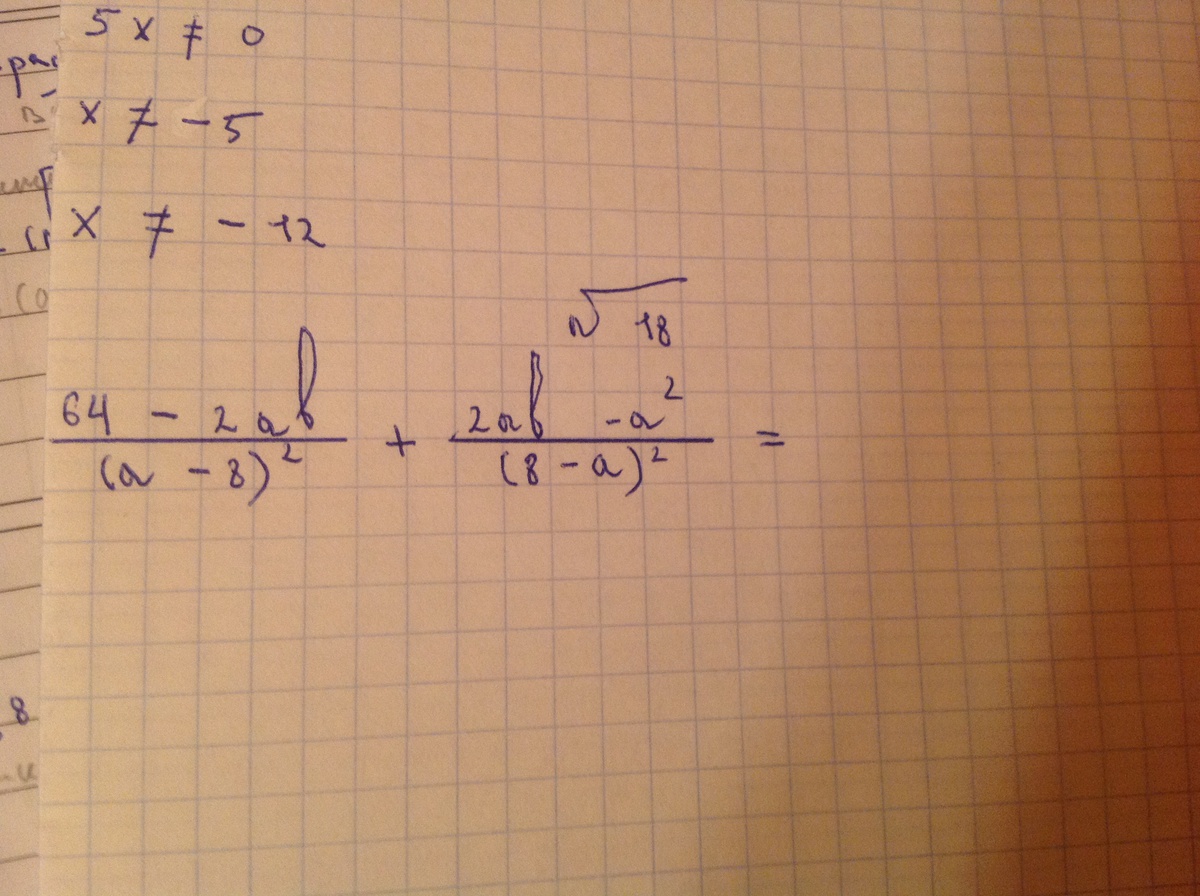 5x ≠ 0
x ≠ -5
x ≠ -12
√18
64 - 2ab / (a - 8)² + 2ab - a² / (8 - a)² =
8